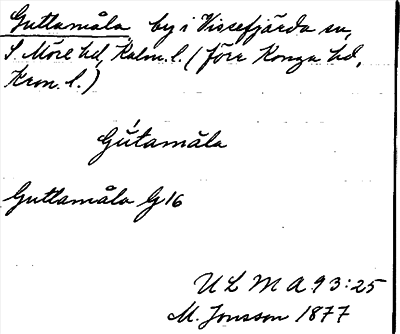 Guttamåla by i Vissefjärda sn,
S. Möre hd, Kalm. l. (förr Konga hd,
Kron. l.)
Gútamåla
Guttamåla G16
ULMA 93:25
M. Jonsson 1877